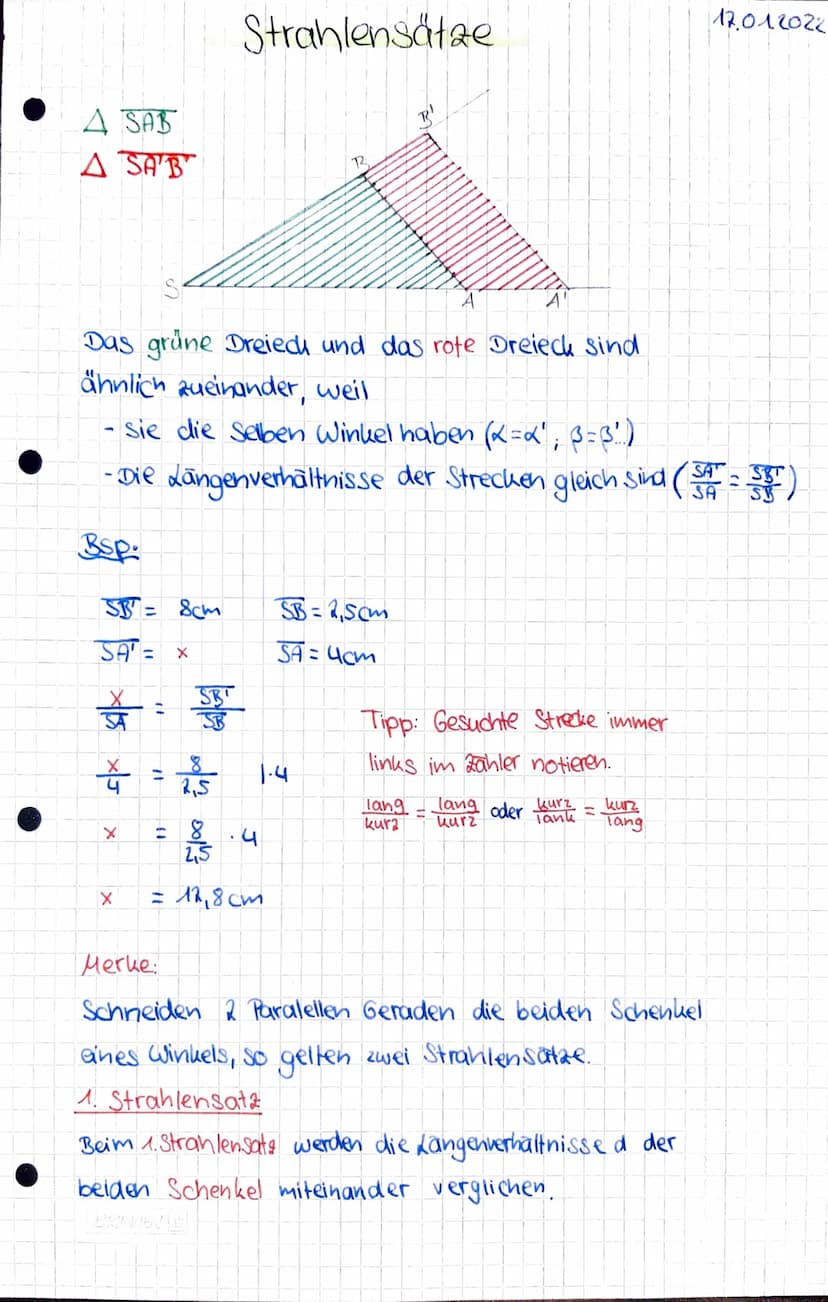 Strahlensätze
17.01.2022
△ SAB
△ SA'B'
B'
B
S
A
A'
Das grüne Dreieck und das rote Dreieck sind
ähnlich zueinander, weil
- sie die selben Winkel haben (α=α' ; β=β'..)
- Die Längenverhältnisse der Strecken gleich sind (SA'/SA = SB'/SB)
Bsp:
SB' = 8cm SB = 2,5cm
SA' = x SA = 4cm
x/SA = SB'/SB
x/4 = 8/2,5 |·4
x = 8/2,5 · 4
x = 12,8cm
Tipp: Gesuchte Strecke immer
links im Zähler notieren.
lang/kurz = lang/kurz oder kurz/lank = kurz/lang
Merke:
Schneiden 2 Paralellen Geraden die beiden Schenkel
eines Winkels, so gelten zwei Strahlensätze.
1. Strahlensatz
Beim 1. Strahlensatz werden die Längenverhältnisse d der
beiden Schenkel miteinander verglichen.